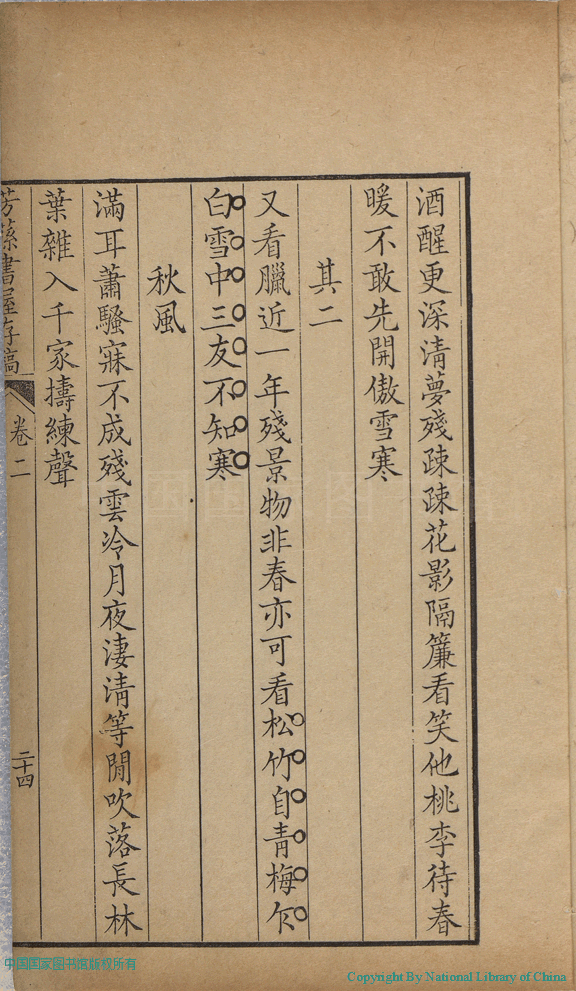 酒醒更深清夢殘疎疎花影隔簾看笑他桃李待春
暖不敢先開傲雪寒
其二
又看臘近一年殘景物非春亦可看松竹自青梅乍
白雪中三友不知寒
秋風
滿耳蕭騷寐不成殘雲冷月夜淒清等閒吹落長林
葉雜入千家擣練聲
芳蓀書屋存稿
卷二
二十四
中国国家图书馆版权所有
Copyright By National Library of China